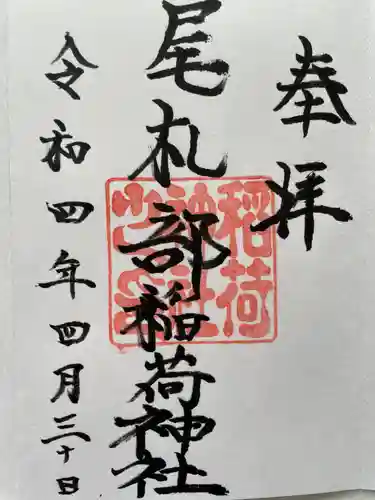 奉拝
尾札部稲荷神社
令和四年四月三十日
稲荷
神社